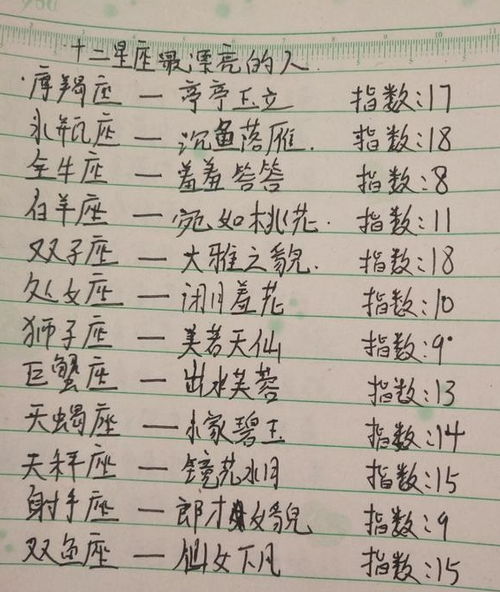 十二星座最漂亮的人
摩羯座 — 亭亭玉立 指数:17
水瓶座 — 沉鱼落雁. 指数:18
金牛座 — 羞羞答答 指数:8
白羊座 — 宛如桃花. 指数:11
双子座 — 大雅之貌. 指数:18
处女座 — 闭月羞花 指数:10
狮子座 — 美若天仙 指数:9
巨蟹座 — 出水芙蓉 指数:13
天蝎座 — 小家碧玉 指数:14
天秤座 — 镜花水月 指数:15
射手座 — 郎才女貌 指数:9
双鱼座 — 仙女下凡 指数:15